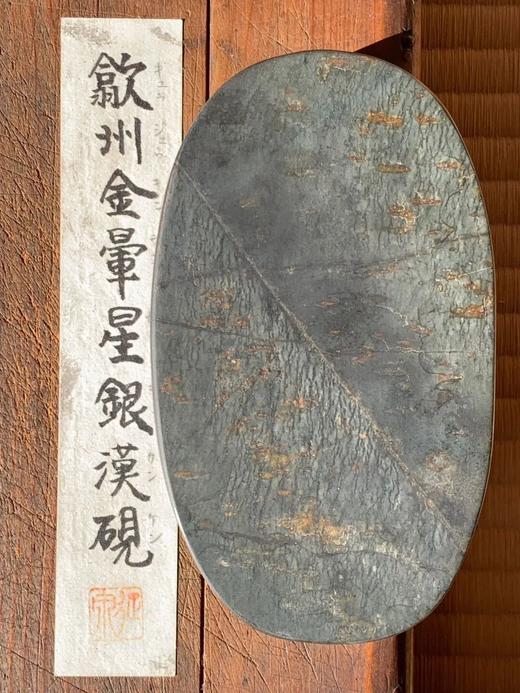 歙州金暈星銀漢硯